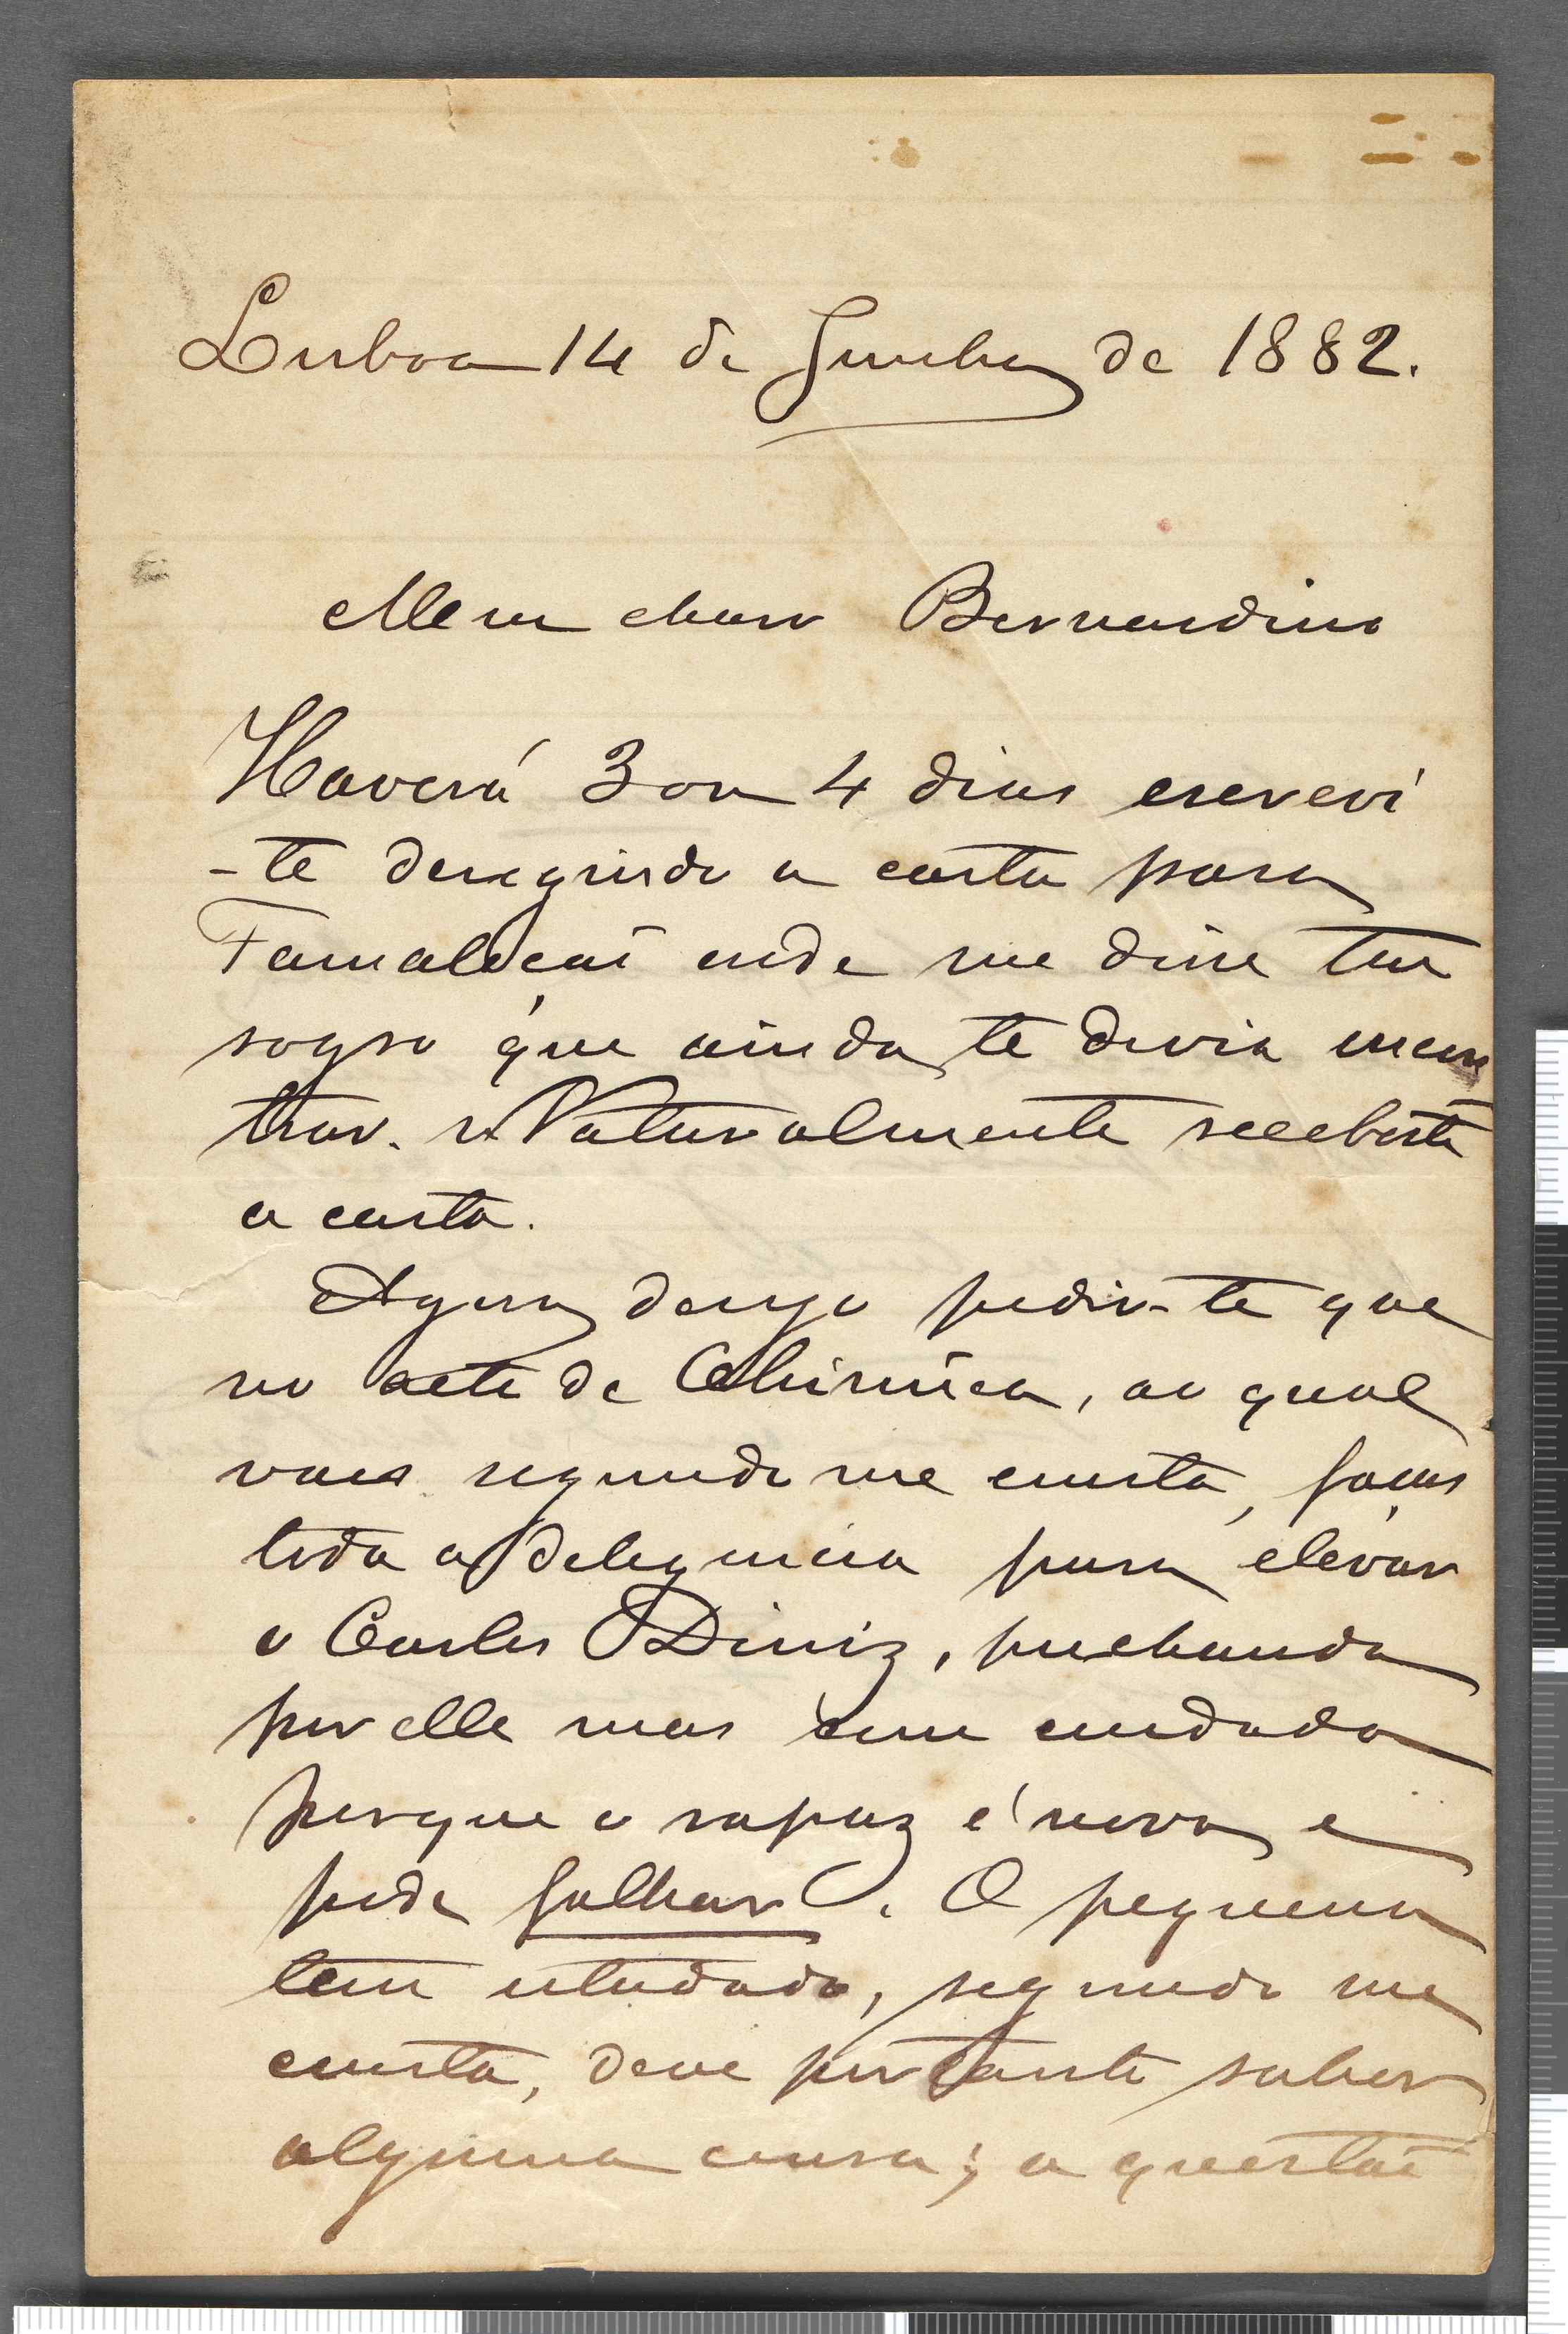 Lisboa 14 de Junho de 1882.
Meu charo Bernardino
Haverá 3 ou 4 dias escrevi
-te deregindo a carta para
Famalicão onde me disse teu
sogro que ainda te devia encon
trar. Naturalmente recebeste
a carta.
Agora desejo pedir-te que
no acto de Chimica, ao qual
vaes segundo me consta, faças
toda a deligencia para elevar
o Carlos Diniz, puchando
por elle mas com cuidado
porque o rapaz é novo e
pode falhar. O pequeno
tem estudado, segundo me
consta, deve portanto saber
alguma cousa; a questão